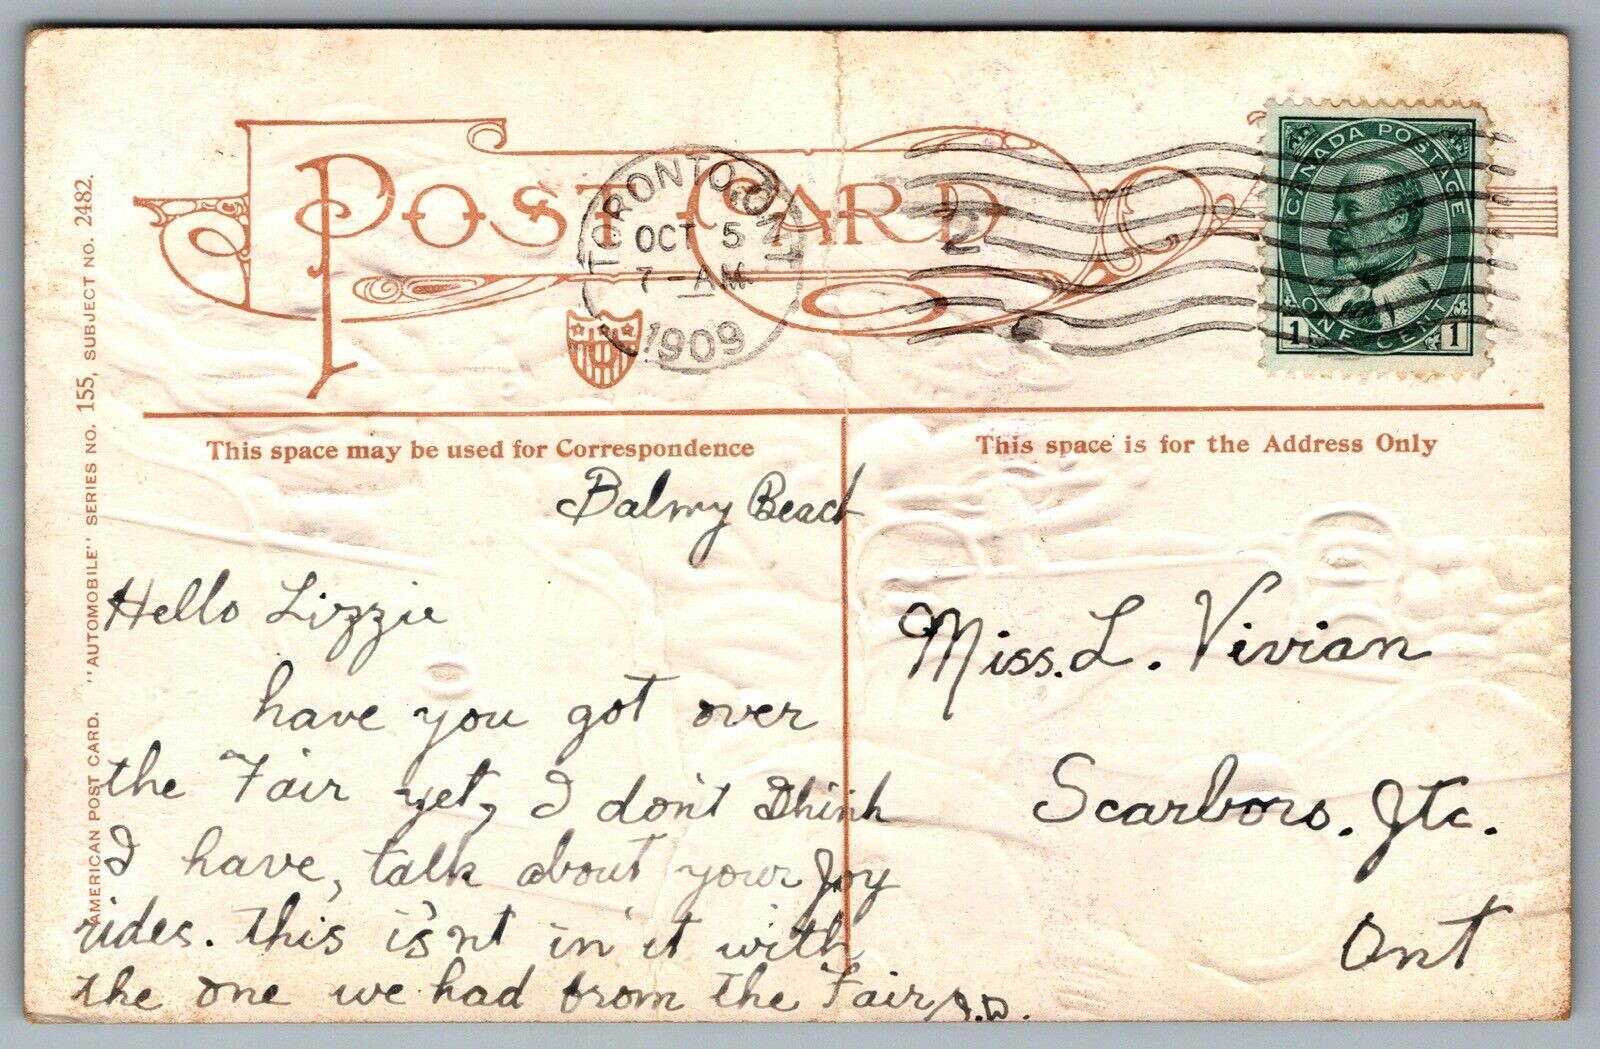 POST CARD
TORONTO, ONT
OCT 5
7 - AM
1909
2
CANADA POSTAGE
1 ONE CENT 1
AMERICAN POST CARD. "AUTOMOBILE" SERIES NO. 155, SUBJECT NO. 2482.
This space may be used for Correspondence
This space is for the Address Only
Balmy Beach
Hello Lizzie
have you got over
the Fair yet, I don't think
I have, talk about your Joy
rides. this is'nt in it with
the one we had from the Fair
Miss. L. Vivian
Scarboro. Jtc.
Ont